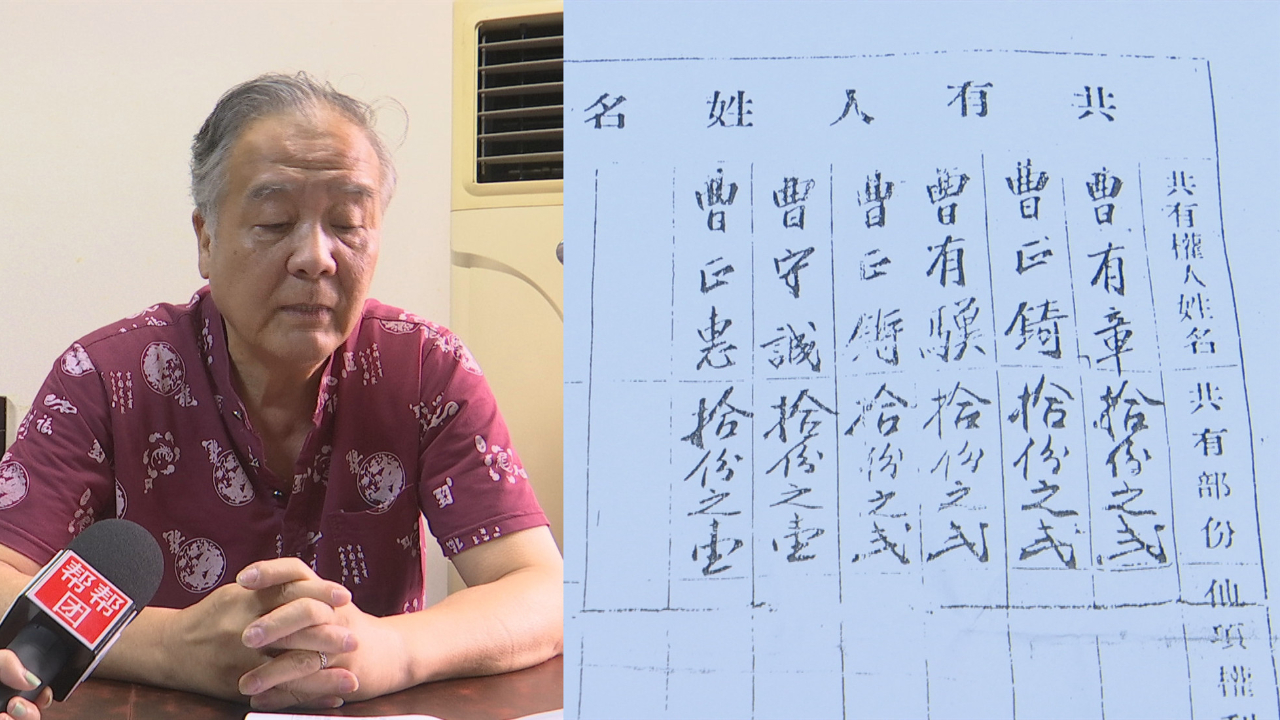 帮帮
团
共有人姓名
共有權人姓名
共有部份
曹有章
拾份之弍
曹正錡
拾份之弍
曹有騤
拾份之弍
曹正
拾份之弍
曹守誠
拾份之壹
曹正惠
拾份之壹
項權